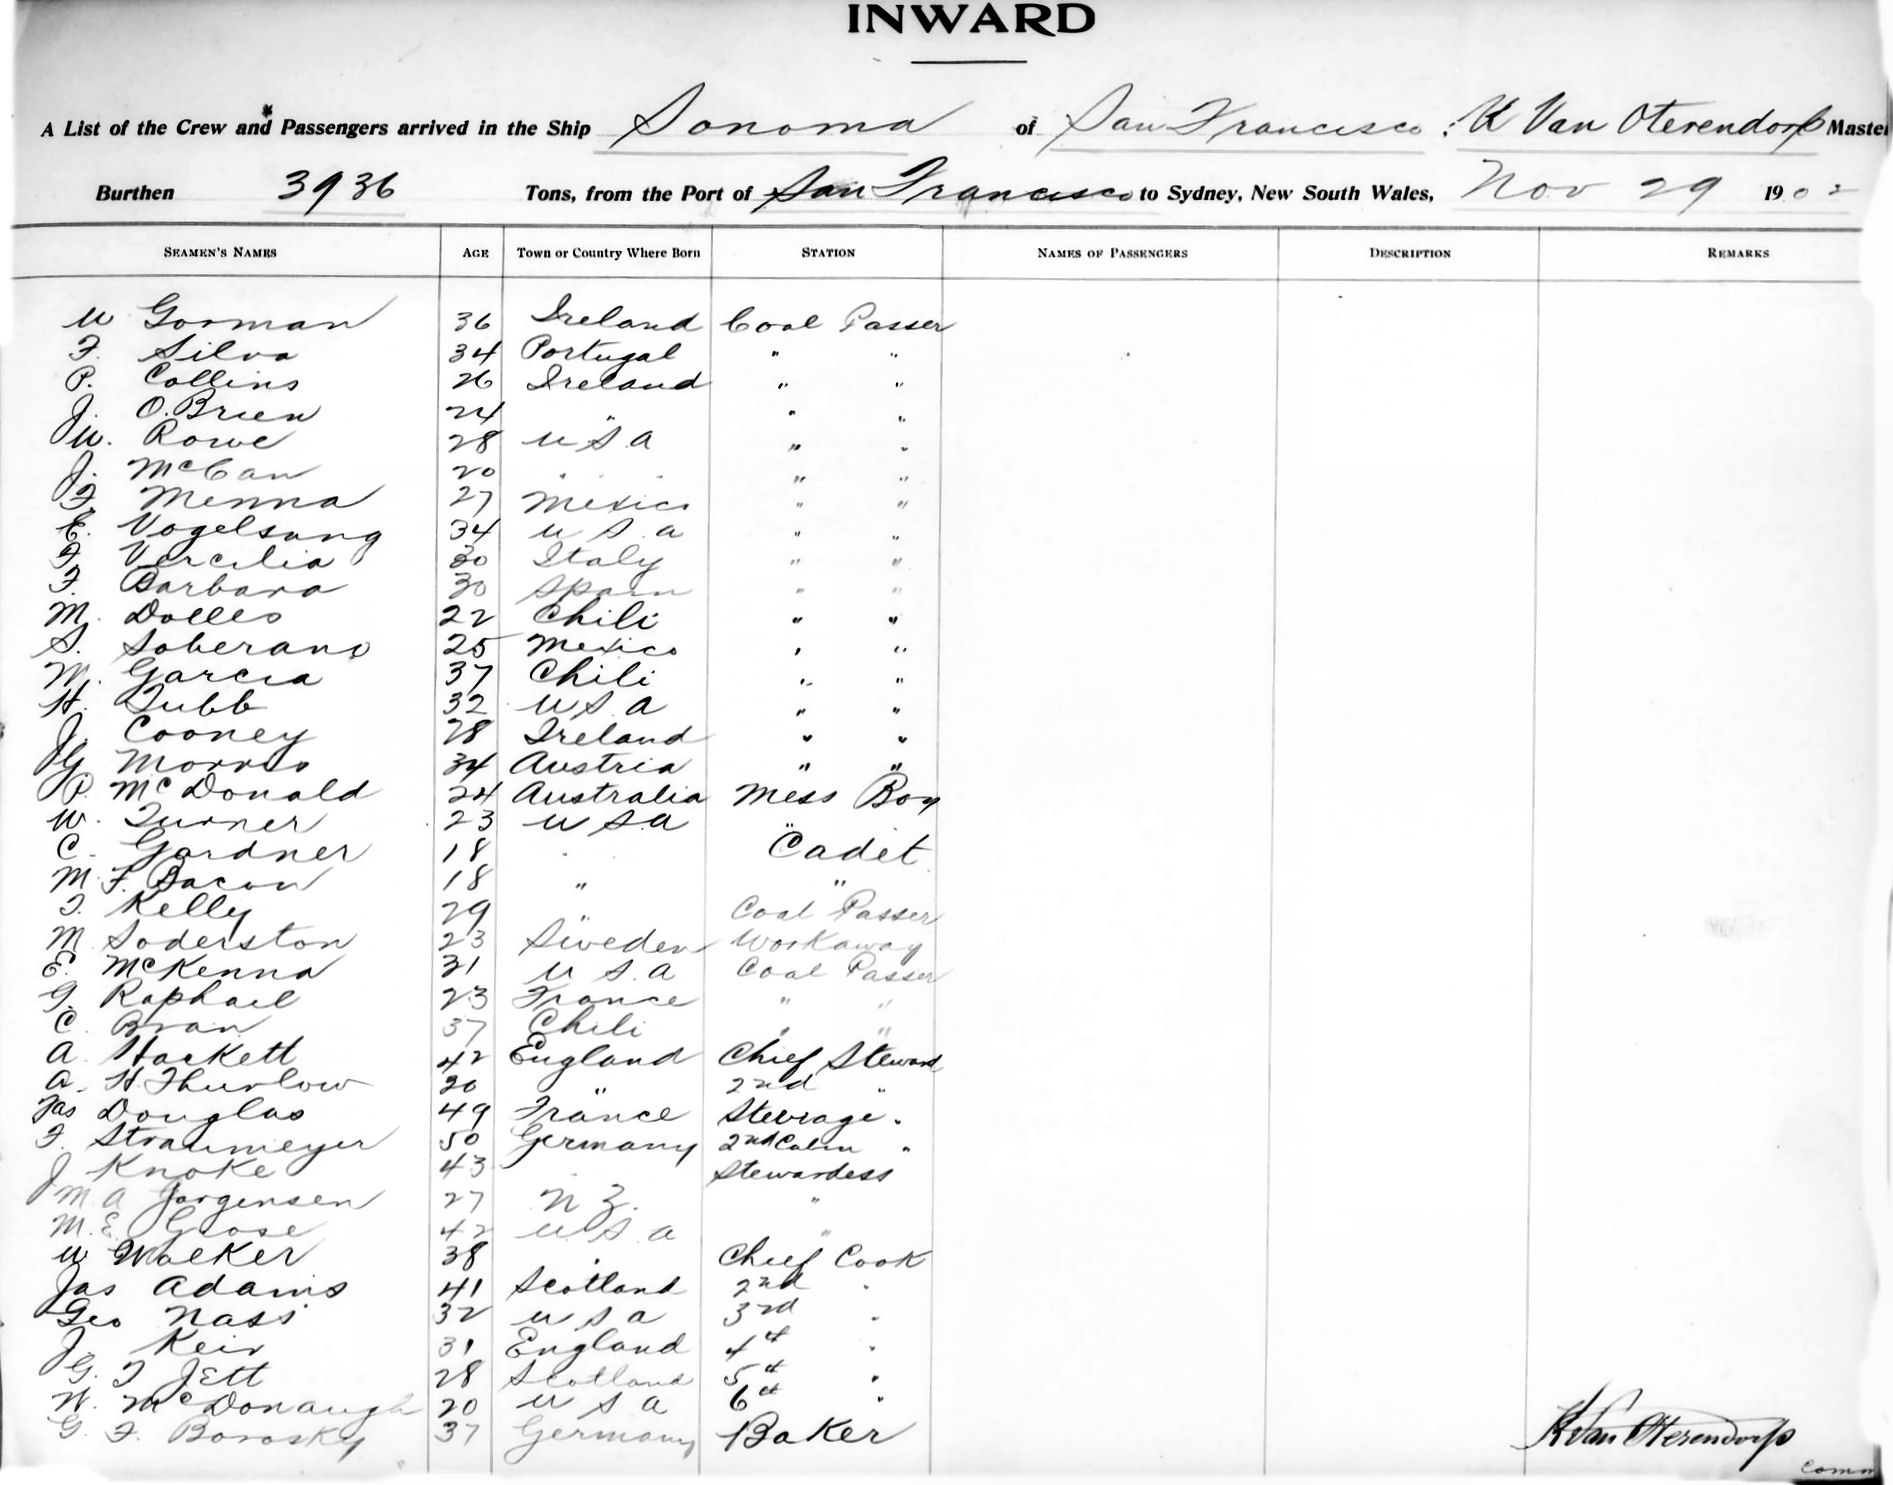 INWARD
A List of the Crew and Passengers arrived in the Ship Sonoma of San Francisco, K Van Oterendorp Master
Burthen 3936 Tons, from the Port of San Francisco to Sydney, New South Wales, Nov 29 1902
SEAMEN'S NAMES AGE Town or Country Where Born STATION NAMES OF PASSENGERS DESCRIPTION REMARKS
W Gorman 36 Ireland Coal Passer
F. Silva 34 Portugal " "
P. Collins 26 Ireland " "
J. O.Brien 24 " " "
W. Rowe 28 U S. A " "
J. McCan 20 " " " "
F. Menna 27 Mexico " "
E. Vogelsang 34 U S. A " "
F. Vercilia 30 Italy " "
F. Barbara 30 Spain " "
M. Dolles 22 Chili " "
S. Soberano 25 Mexico " "
M. Garcia 37 Chili " "
H. Tubb 32 U S. A " "
J. Cooney 28 Ireland " "
G Morris 34 Austria " "
P. McDonald 24 Australia Mess Boy
W. Turner 23 U S. A "
C. Gardner 18 " Cadet
M. F. Bacon 18 " "
T. Kelly 29 " Coal Passer
M Soderston 23 Sweden Workaway
E. McKenna 31 U S. A Coal Passer
G. Raphael 23 France " "
C. Bran 37 Chili " "
A. Hackett 42 England Chief Steward
A. H. Thurlow 30 " 2nd "
Jas Douglas 49 France Steerage "
F. Straumeyer 50 Germany 2nd Cabin "
J Knoke 43 Stewardess
M A Jorgensen 27 N Z. "
M. E. Grose 42 U S A "
W Walker 38 " Chief Cook
Jas Adams 41 Scotland 2nd "
Geo Nass 32 U S A 3rd "
J. Keir 31 England 4th "
G. T Jett 28 Scotland 5th "
N. McDonaugh 20 U S A 6th "
G. F. Borosky 37 Germany Baker
K Van Oterendorp
Comm